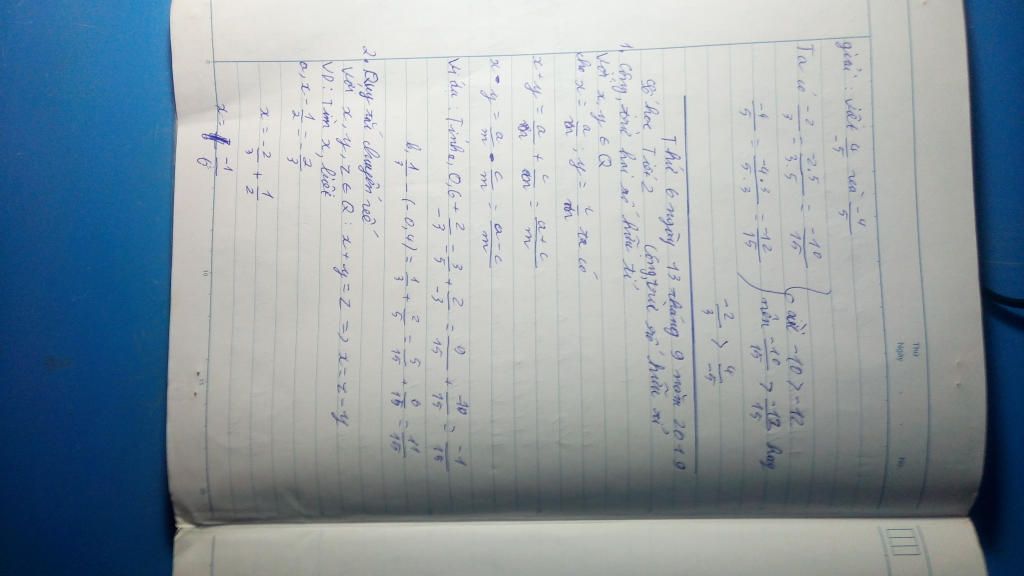 Thứ
Ngày
No.
giải: Viết 4/-5 = -4/5
Ta có -2/3 = -2.5/3.5 = -10/15
-4/5 = -4.3/5.3 = -12/15
vì -10 > -12
nên -10/15 > -12/15 hay
-2/3 > 4/-5
Thứ 6 ngày 13 tháng 9 năm 2019
Số học Tiết 2 Cộng, trừ số hữu tỉ
1. Cộng, trừ hai số hữu tỉ
Với x, y ∈ Q
x = a/m; y = c/m ta có
x + y = a/m + c/m = a+c/m
x - y = a/m - c/m = a-c/m
Ví dụ: Tính a, 0,6 + 2/-3 = 3/5 + 2/-3 = 9/15 + -10/15 = -1/15
b, 1/3 - (-0,4) = 1/3 + 2/5 = 5/15 + 6/15 = 11/15
2. Quy tắc chuyển vế
Với x, y, z ∈ Q: x + y = z => x = z - y
VD: Tìm x, biết
a, x - 1/2 = -2/3
x = -2/3 + 1/2
x = -1/6